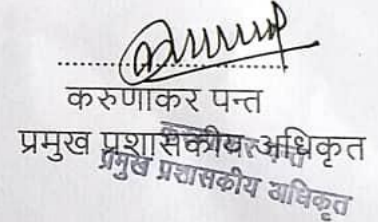 करुणाकर पन्त
प्रमुख प्रशासकीय अधिकृत
प्रमुख प्रशासकीय अधिकृत